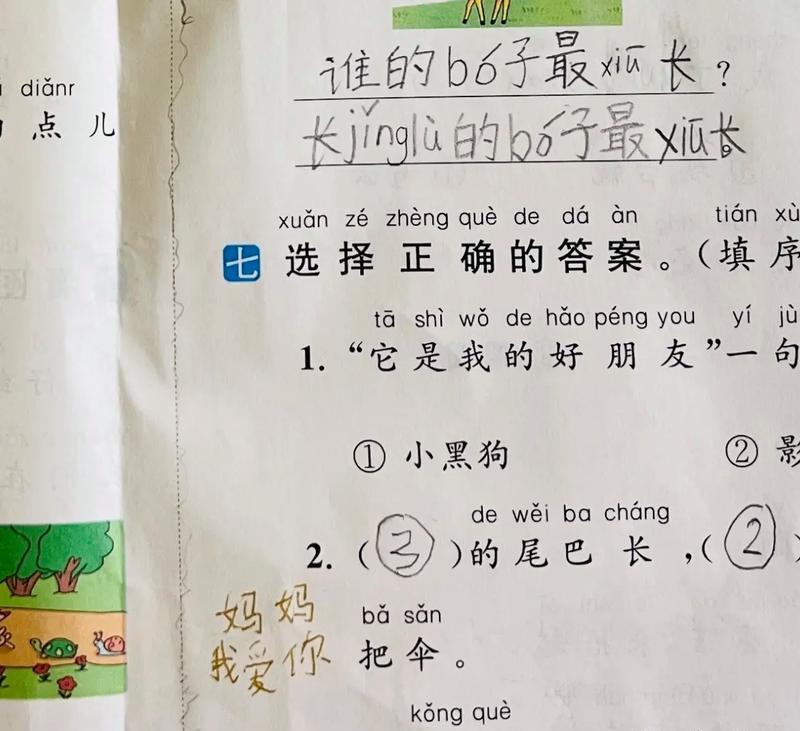 diǎnr
点 儿
谁的bó子最xiū长?
长jǐnglù的bó子最xiū长
xuǎn zé zhèng què de dá àn tián xù
七 选择正确的答案。(填序
tā shì wǒ de hǎo péng you yí jù
1. “它是我的好朋友”一句
① 小黑狗 ② 影
de wěi ba cháng
2. (③)的尾巴长,(②)
妈妈
我爱你
bǎ sǎn
把伞。
kǒng què